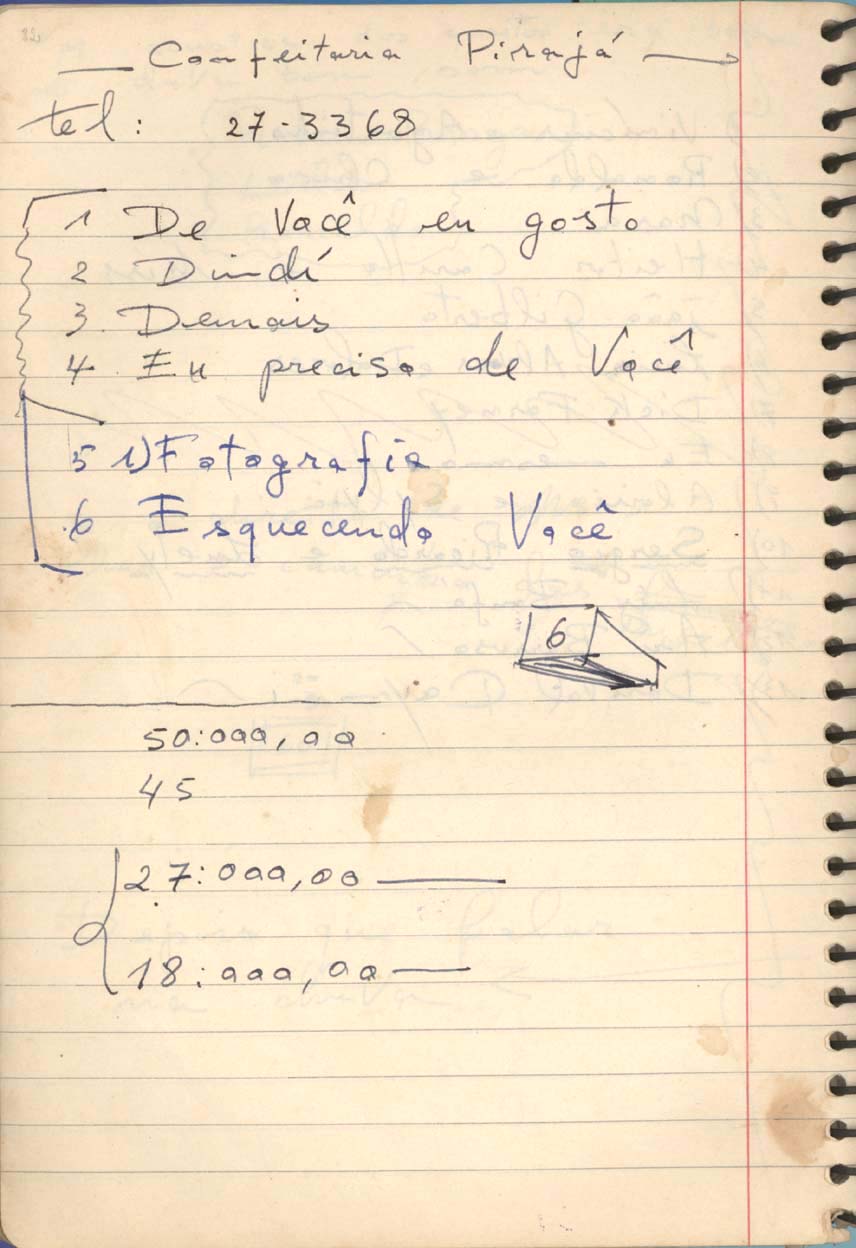 Confeitaria Pirajá
tel: 27-3368
1 De Você eu gosto
2 Dindí
3. Demais
4. Eu preciso de Você
5 1) Fotografia
6 Esquecendo Você
6
50:000,00
45
27:000,00
18:000,00